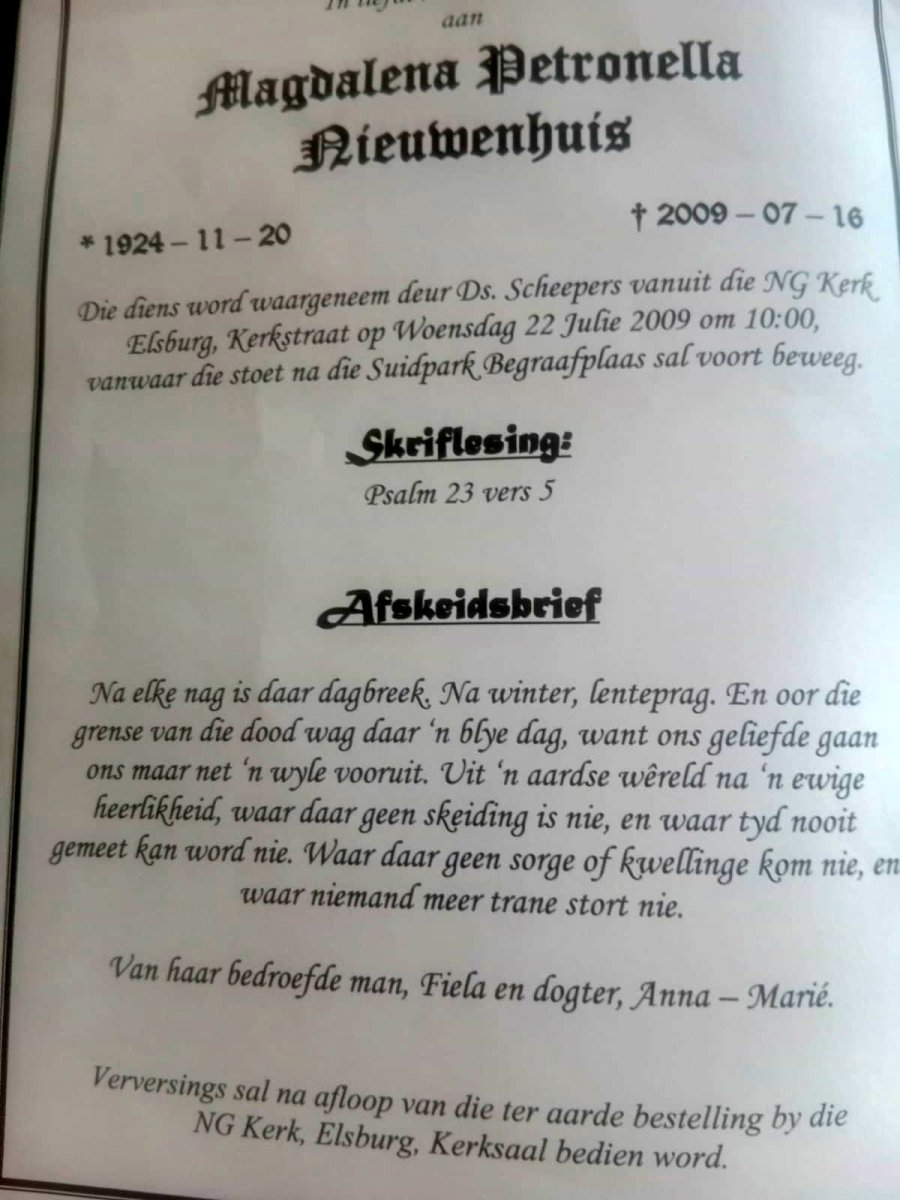 In
aan
Magdalena Petronella
Nieuwenhuis
* 1924 – 11 – 20
† 2009 – 07 – 16
Die diens word waargeneem deur Ds. Scheepers vanuit die NG Kerk
Elsburg, Kerkstraat op Woensdag 22 Julie 2009 om 10:00,
vanwaar die stoet na die Suidpark Begraafplaas sal voort beweeg.
Skriflesing:
Psalm 23 vers 5
Afskeidsbrief
Na elke nag is daar dagbreek. Na winter, lenteprag. En oor die
grense van die dood wag daar ‘n blye dag, want ons geliefde gaan
ons maar net ‘n wyle vooruit. Uit ‘n aardse wêreld na ‘n ewige
heerlikheid, waar daar geen skeiding is nie, en waar tyd nooit
gemeet kan word nie. Waar daar geen sorge of kwellinge kom nie, en
waar niemand meer trane stort nie.
Van haar bedroefde man, Fiela en dogter, Anna – Marié.
Verversings sal na afloop van die ter aarde bestelling by die
NG Kerk, Elsburg, Kerksaal bedien word.